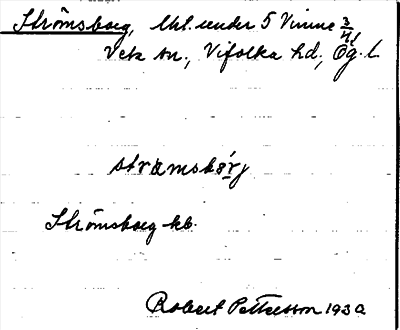 Strömsborg, lht. under 5 Vinne 3/4,
Veta sn., Vifolka hd., Ög. l.
strœmsbǿrj
Strömsborg kb.
Robert Pettersson 1930